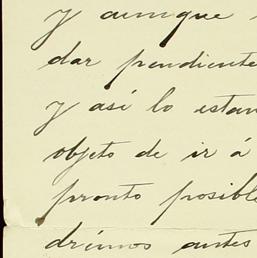 y aunque
dar pendiente
y así lo estan
objeto de ir á
pronto posible
drémos antes